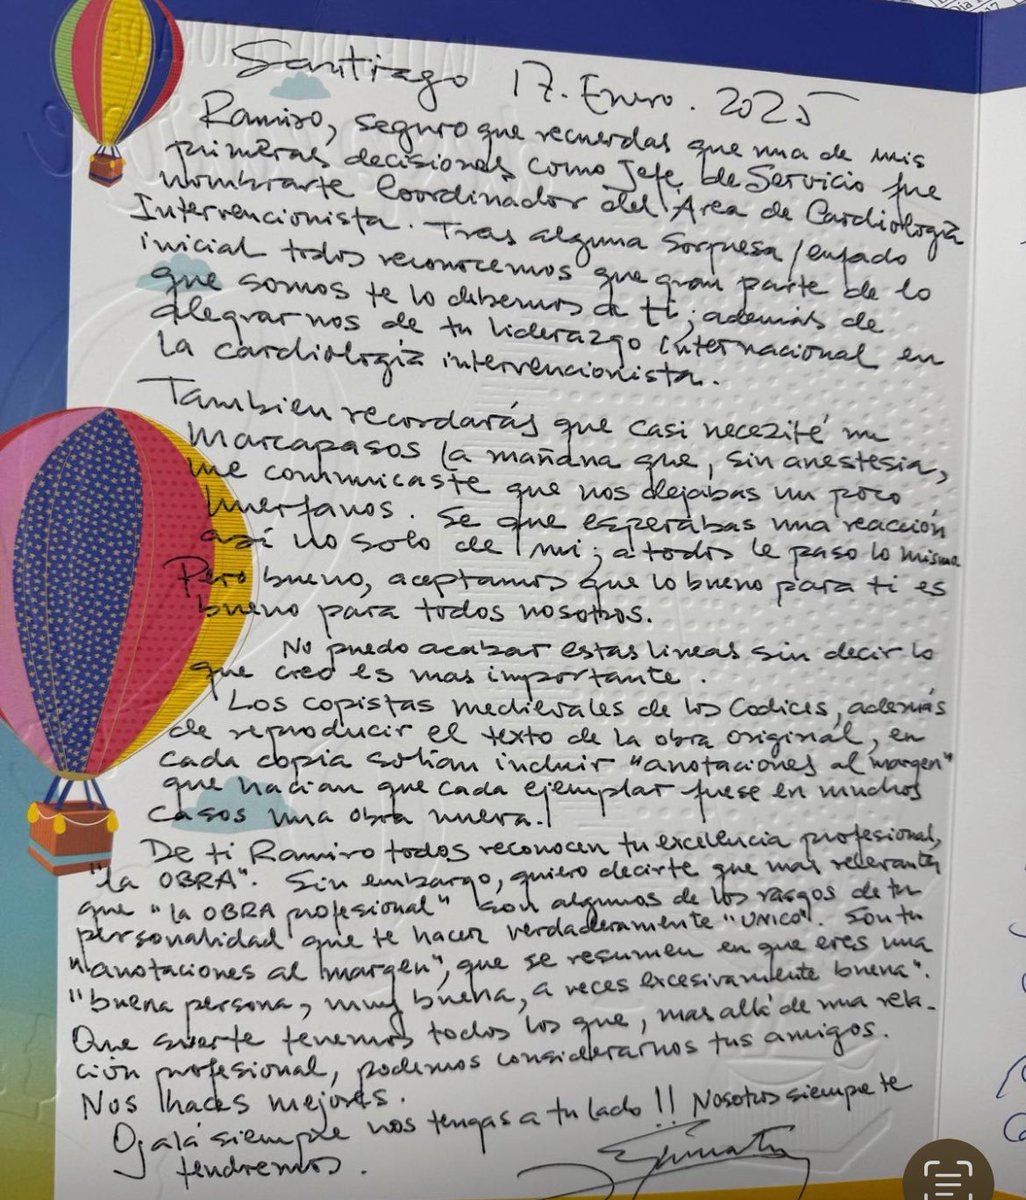 Santiago 17. Enero. 2025
Ramiro, seguro que recuerdas que una de mis
primeras decisiones como Jefe de Servicio fue
nombrarte Coordinador del Area de Cardiología
Intervencionista. Tras alguna sorpresa/enfado
inicial todos reconocemos que gran parte de lo
que somos te lo debemos a ti; además de
alegrarnos de tu liderazgo internacional en
la cardiología intervencionista.
Tambien recordarás que casi necezité un
marcapasos la mañana que, sin anestesia,
me comunicaste que nos dejabas un poco
huerfanos. Se que esperabas una reacción
así no solo de mi; a todos le paso lo mismo
Pero bueno, aceptamos que lo bueno para ti es
bueno para todos nosotros.
No puedo acabar estas lineas sin decir lo
que creo es mas importante.
Los copistas medievales de los Codices, además
de reproducir el texto de la obra original, en
cada copia solían incluir "anotaciones al margen"
que hacían que cada ejemplar fuese en muchos
casos una obra nueva.
De ti Ramiro todos reconocen tu excelencia profesional,
"la OBRA". Sin embargo, quiero decirte que mas relevante
que "la OBRA profesional" son algunos de los rasgos de tu
personalidad que te hacen verdaderamente "UNICO". Son tu
"anotaciones al margen", que se resumen en que eres una
"buena persona, muy buena, a veces excesivamente buena".
Que suerte tenemos todos los que, mas allá de una rela-
ción profesional, podemos considerarnos tus amigos.
Nos haces mejores.
Ojalá siempre nos tengas a tu lado!! Nosotros siempre te
tendremos.